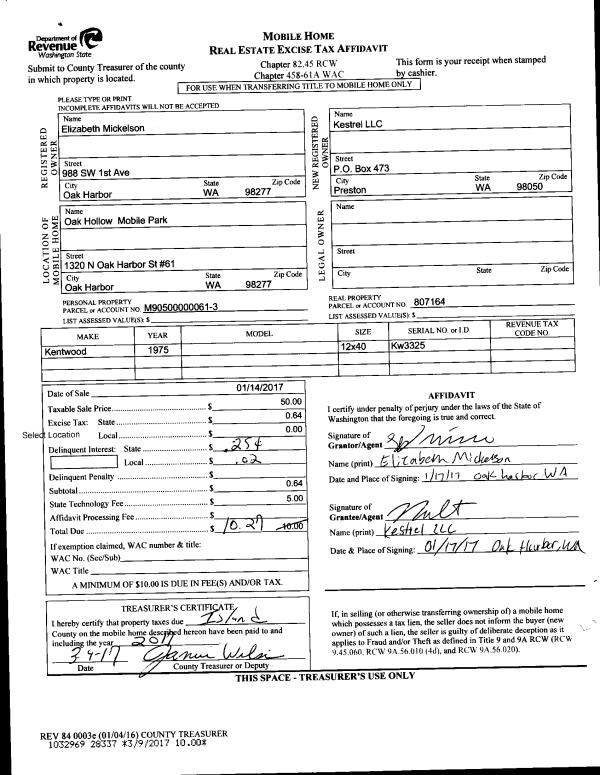 Department of
Revenue
Washington State
MOBILE HOME
REAL ESTATE EXCISE TAX AFFIDAVIT
Submit to County Treasurer of the county
in which property is located.
Chapter 82.45 RCW
Chapter 458-61A WAC
This form is your receipt when stamped
by cashier.
FOR USE WHEN TRANSFERRING TITLE TO MOBILE HOME ONLY
PLEASE TYPE OR PRINT
INCOMPLETE AFFIDAVITS WILL NOT BE ACCEPTED
REGISTERED
OWNER
Name
Elizabeth Mickelson
Street
988 SW 1st Ave
City State Zip Code
Oak Harbor WA 98277
NEW REGISTERED
OWNER
Name
Kestrel LLC
Street
P.O. Box 473
City State Zip Code
Preston WA 98050
LOCATION OF
MOBILE HOME
Name
Oak Hollow Mobile Park
Street
1320 N Oak Harbor St #61
City State Zip Code
Oak Harbor WA 98277
LEGAL OWNER
Name
Street
City State Zip Code
PERSONAL PROPERTY
PARCEL or ACCOUNT NO. M90500000061-3
LIST ASSESSED VALUE(S): $
REAL PROPERTY
PARCEL or ACCOUNT NO. 807164
LIST ASSESSED VALUE(S): $
MAKE YEAR MODEL SIZE SERIAL NO. or I.D. REVENUE TAX CODE NO.
Kentwood 1975 12x40 Kw3325
Date of Sale 01/14/2017
Taxable Sale Price $ 50.00
Excise Tax: State $ 0.64
Select Location Local $ 0.00
Delinquent Interest: State $ .25¢
Local $ .02
Delinquent Penalty $
Subtotal $ 0.64
State Technology Fee $ 5.00
Affidavit Processing Fee $
Total Due $ 10.27 10.00
If exemption claimed, WAC number & title:
WAC No. (Sec/Sub)
WAC Title
A MINIMUM OF $10.00 IS DUE IN FEE(S) AND/OR TAX.
AFFIDAVIT
I certify under penalty of perjury under the laws of the State of
Washington that the foregoing is true and correct.
Signature of
Grantor/Agent
Name (print) Elizabeth Mickelson
Date and Place of Signing: 1/17/17 Oak harbor WA
Signature of
Grantee/Agent
Name (print) Kestrel LLC
Date & Place of Signing: 01/17/17 Oak Harbor, WA
TREASURER'S CERTIFICATE
I hereby certify that property taxes due Island
County on the mobile home described hereon have been paid to and
including the year 2017
3-9-17
Date County Treasurer or Deputy
If, in selling (or otherwise transferring ownership of) a mobile home
which possesses a tax lien, the seller does not inform the buyer (new
owner) of such a lien, the seller is guilty of deliberate deception as it
applies to Fraud and/or Theft as defined in Title 9 and 9A RCW (RCW
9.45.060, RCW 9A.56.010 (4d), and RCW 9A.56.020).
THIS SPACE - TREASURER'S USE ONLY
REV 84 0003e (01/04/16) COUNTY TREASURER
1032969 28337 *3/9/2017 10.00*